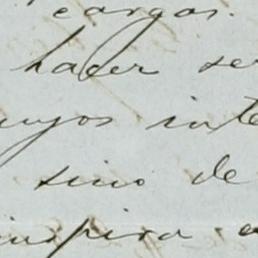 cargos.
hacer ser
uyos inte
sino de
inspira a